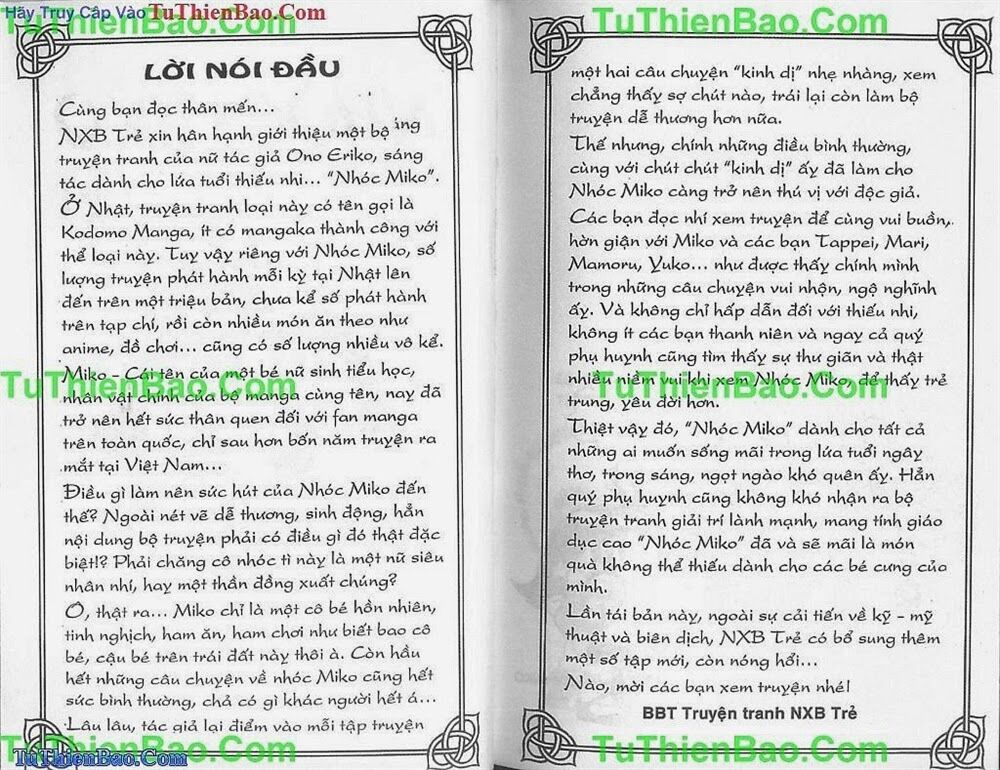 Hãy Truy Cập Vào TuThienBao.Com
TuThienBao.Com
TuThienBao.Com
LỜI NÓI ĐẦU
Cùng bạn đọc thân mến...
NXB Trẻ xin hân hạnh giới thiệu một bộ
truyện tranh của nữ tác giả Ono Eriko, sáng
tác dành cho lứa tuổi thiếu nhi... “Nhóc Miko”.
Ở Nhật, truyện tranh loại này có tên gọi là
Kodomo Manga, ít có mangaka thành công với
thể loại này. Tuy vậy riêng với Nhóc Miko, số
lượng truyện phát hành mỗi kỳ tại Nhật lên
đến trên một triệu bản, chưa kể số phát hành
trên tạp chí, rồi còn nhiều món ăn theo như
anime, đồ chơi... cũng có số lượng nhiều vô kể.
Miko - Cái tên của một bé nữ sinh tiểu học,
nhân vật chính của bộ manga cùng tên, nay đã
trở nên hết sức thân quen đối với fan manga
trên toàn quốc, chỉ sau hơn bốn năm truyện ra
mắt tại Việt Nam...
Điều gì làm nên sức hút của Nhóc Miko đến
thế? Ngoài nét vẽ dễ thương, sinh động, hẳn
nội dung bộ truyện phải có điều gì đó thật đặc
biệt!? Phải chăng cô nhóc tì này là một nữ siêu
nhân nhí, hay một thần đồng xuất chúng?
Ồ, thật ra... Miko chỉ là một cô bé hồn nhiên,
tinh nghịch, ham ăn, ham chơi như biết bao cô
bé, cậu bé trên trái đất này thôi à. Còn hầu
hết những câu chuyện về nhóc Miko cũng hết
sức bình thường, chả có gì khác người hết á...
Lâu lâu, tác giả lại điểm vào mỗi tập truyện
TuThienBao.Com
TuThienBao.Com
TuThienBao.Com
một hai câu chuyện “kinh dị” nhẹ nhàng, xem
chẳng thấy sợ chút nào, trái lại còn làm bộ
truyện dễ thương hơn nữa.
Thế nhưng, chính những điều bình thường,
cùng với chút chút “kinh dị” ấy đã làm cho
Nhóc Miko càng trở nên thú vị với độc giả.
Các bạn đọc nhí xem truyện để cùng vui buồn,
hờn giận với Miko và các bạn Tappei, Mari,
Mamoru, Yuko... như được thấy chính mình
trong những câu chuyện vui nhộn, ngộ nghĩnh
ấy. Và không chỉ hấp dẫn đối với thiếu nhi,
không ít các bạn thanh niên và ngay cả quý
phụ huynh cũng tìm thấy sự thư giãn và thật
nhiều niềm vui khi xem Nhóc Miko, để thấy trẻ
trung, yêu đời hơn.
Thiệt vậy đó, “Nhóc Miko” dành cho tất cả
những ai muốn sống mãi trong lứa tuổi ngây
thơ, trong sáng, ngọt ngào khó quên ấy. Hẳn
quý phụ huynh cũng không khó nhận ra bộ
truyện tranh giải trí lành mạnh, mang tính giáo
dục cao “Nhóc Miko” đã và sẽ mãi là món
quà không thể thiếu dành cho các bé cưng của
mình.
Lần tái bản này, ngoài sự cải tiến về kỹ - mỹ
thuật và biên dịch, NXB Trẻ có bổ sung thêm
một số tập mới, còn nóng hổi...
Nào, mời các bạn xem truyện nhé!
BBT Truyện tranh NXB Trẻ
TuThienBao.Com
TuThienBao.Com
TuThienBao.Com